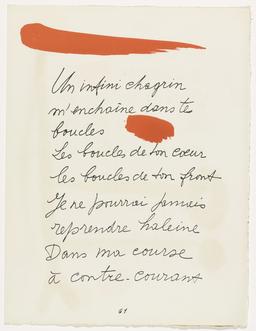 Un infini chagrin
m'enchaîne dans te
boucles
Les boucles de ton cœur
les boucles de ton front
Je ne pourrai jamais
reprendre haleine
Dans ma course
à contre-courant
61